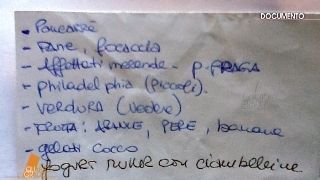 DOCUMENTO
- Pancarrè
- PANE, focaccia
- Affettati merende - P. PRAGA
- philadelphia (piccoli).
- VERDURA (vedere)
- FRUTTA: ARANCE, PERE, banane
- gelati cocco
yogurt MULLER con ciambelline